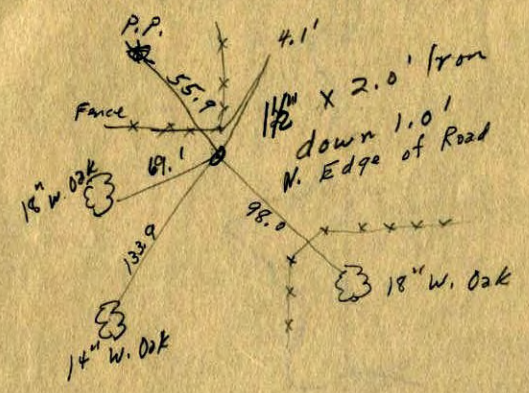 P.P.
4.1'
55.9
1½" x 2.0' Iron
Fence
down 1.0'
N. Edge of Road
69.1
18" W. Oak
98.0
133.9
18" W. Oak
14" W. Oak